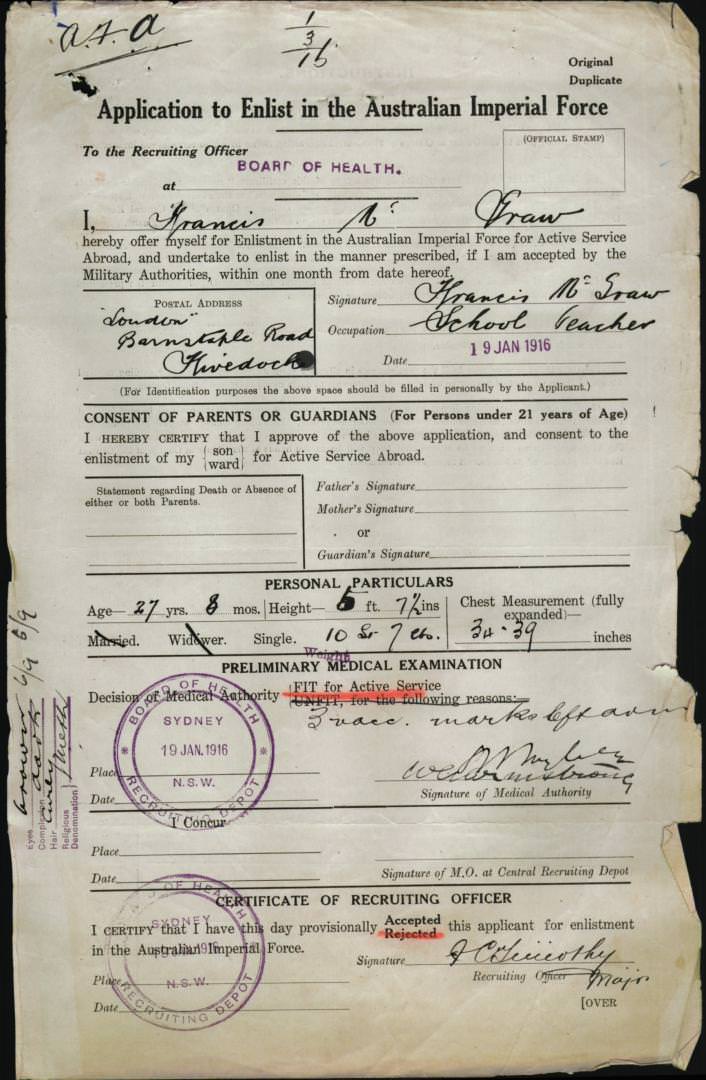 A.F.A
1
3
16
Original
Duplicate
Application to Enlist in the Australian Imperial Force
(OFFICIAL STAMP)
To the Recruiting Officer
BOARD OF HEALTH.
at
I, Francis Mc Graw
hereby offer myself for Enlistment in the Australian Imperial Force for Active Service
Abroad, and undertake to enlist in the manner prescribed, if I am accepted by the
Military Authorities, within one month from date hereof.
POSTAL ADDRESS
"Loudon"
Barnstaple Road
Fivedock
Signature Francis Mc Graw
Occupation School Teacher
Date 19 JAN 1916
(For Identification purposes the above space should be filled in personally by the Applicant.)
CONSENT OF PARENTS OR GUARDIANS (For Persons under 21 years of Age)
I HEREBY CERTIFY that I approve of the above application, and consent to the
enlistment of my {son ward} for Active Service Abroad.
Statement regarding Death or Absence of
either or both Parents.
Father's Signature
Mother's Signature
or
Guardian's Signature
PERSONAL PARTICULARS
Age— 27 yrs. 8 mos. Height— 5 ft. 7½ ins
Chest Measurement (fully
expanded)—
34-39 inches
Married. Widower. Single. 10 St 7 lbs.
Weight
PRELIMINARY MEDICAL EXAMINATION
Decision of Medical Authority
FIT for Active Service
UNFIT, for the following reasons:—
3 vacc. marks left arm
BOARD OF HEALTH
SYDNEY
19 JAN. 1916
N.S.W.
RECRUITING DEPOT
Place
Date
Armstrong
Signature of Medical Authority
Eyes brown 6/9 6/9
Complexion dark
Hair curly
Religious Denomination Meth
I Concur
Place
Date
Signature of M.O. at Central Recruiting Depot
CERTIFICATE OF RECRUITING OFFICER
I CERTIFY that I have this day provisionally Accepted Rejected this applicant for enlistment
in the Australian Imperial Force.
BOARD OF HEALTH
SYDNEY
19 JAN. 1916
N.S.W.
RECRUITING DEPOT
Signature J C Timothy
Recruiting Officer Major
Place
Date
[OVER